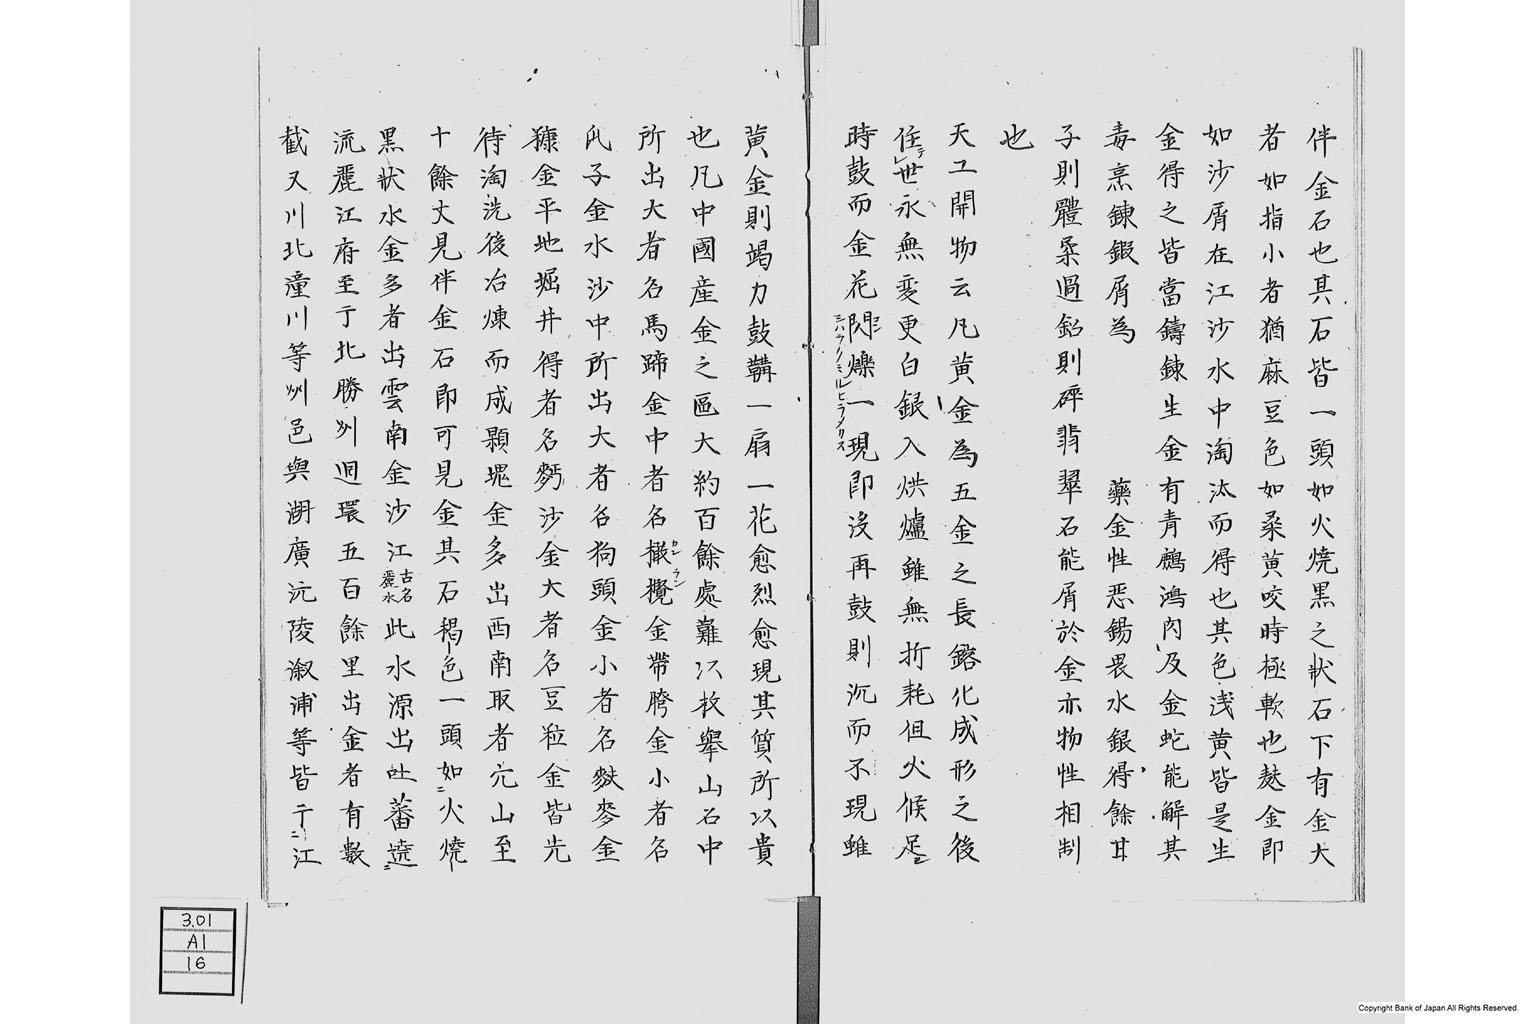 伴金石也其石皆一頭如火燒黒之狀石下有金大
者如指小者猶麻豆色如桑黄咬時極軟也麸金即
如沙屑在江沙水中淘汰而得也其色浅黄皆是生
金得之皆當鑄錬生金有青鷓鴻肉及金蛇能解其
毒烹錬鍛屑為　藥金性悪錫畏水銀得餘甘
子則體柔過鉛則碎翡翠石能屑於金亦物性相制
也
天工開物云凡黄金為五金之長鎔化成形之後
住テレ世永無変更白銀入烘爐雖無折耗但火候足
時鼓而金花閃爍一現即没再鼓則沉而不現雖
黄金則竭力鼓鞲一扇一花愈烈愈現其質所以貴
也凡中國産金之區大約百餘處難以枚舉山石中
所出大者名馬蹄金中者名橄欖カンラン金帶胯金小者名
瓜子金水沙中所出大者名狗頭金小者名麩麥金
糠金平地堀井得者名麪沙金大者名豆粒金皆先
待淘洗後冶煉而成顆塊金多出西南取者穴山至
十餘丈見伴金石即可見金其石褐色一頭如ニ火燒
黒狀水金多者出雲南金沙江古名麗水此水源出吐蕃遶ニ
流麗江府至于北勝州迴環五百餘里出金者有數
截又川北潼川等州邑與湖廣沅陵溆浦等皆于ニ江
3.01
A1
16
Copyright Bank of Japan All Rights Reserved.